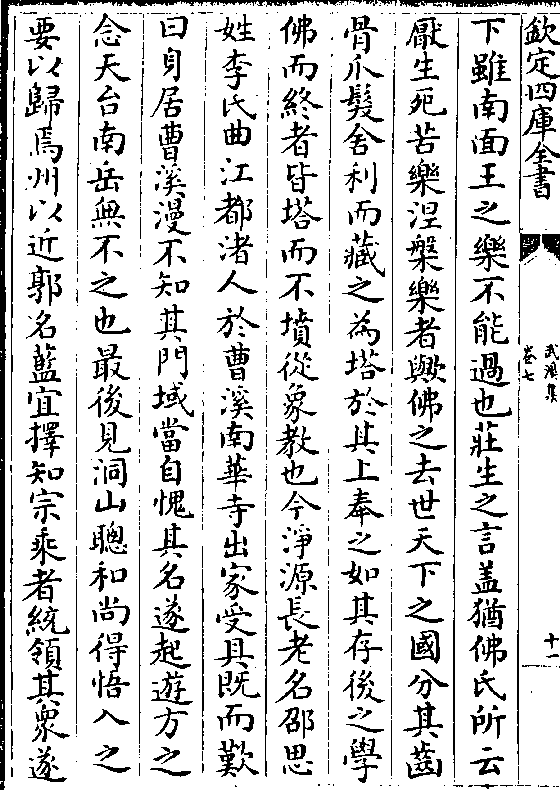 欽定四庫全書
武溪集
卷七
十一
下雖南面王之樂不能過也莊生之言盖猶佛氏所云
厭生死苦樂涅槃樂者歟佛之去世天下之國分其齒
骨爪髮舍利而藏之為塔於其上奉之如其存後之學
佛而終者皆塔而不墳從象教也今淨源長老名邵思
姓李氏曲江都渚人於曹溪南華寺出家受具既而歎
曰身居曹溪漫不知其門域當自愧其名遂起遊方之
念天台南岳無不之也最後見洞山聰和尚得悟入之
要以歸焉州以近郭名藍宜擇知宗乘者統領其衆遂